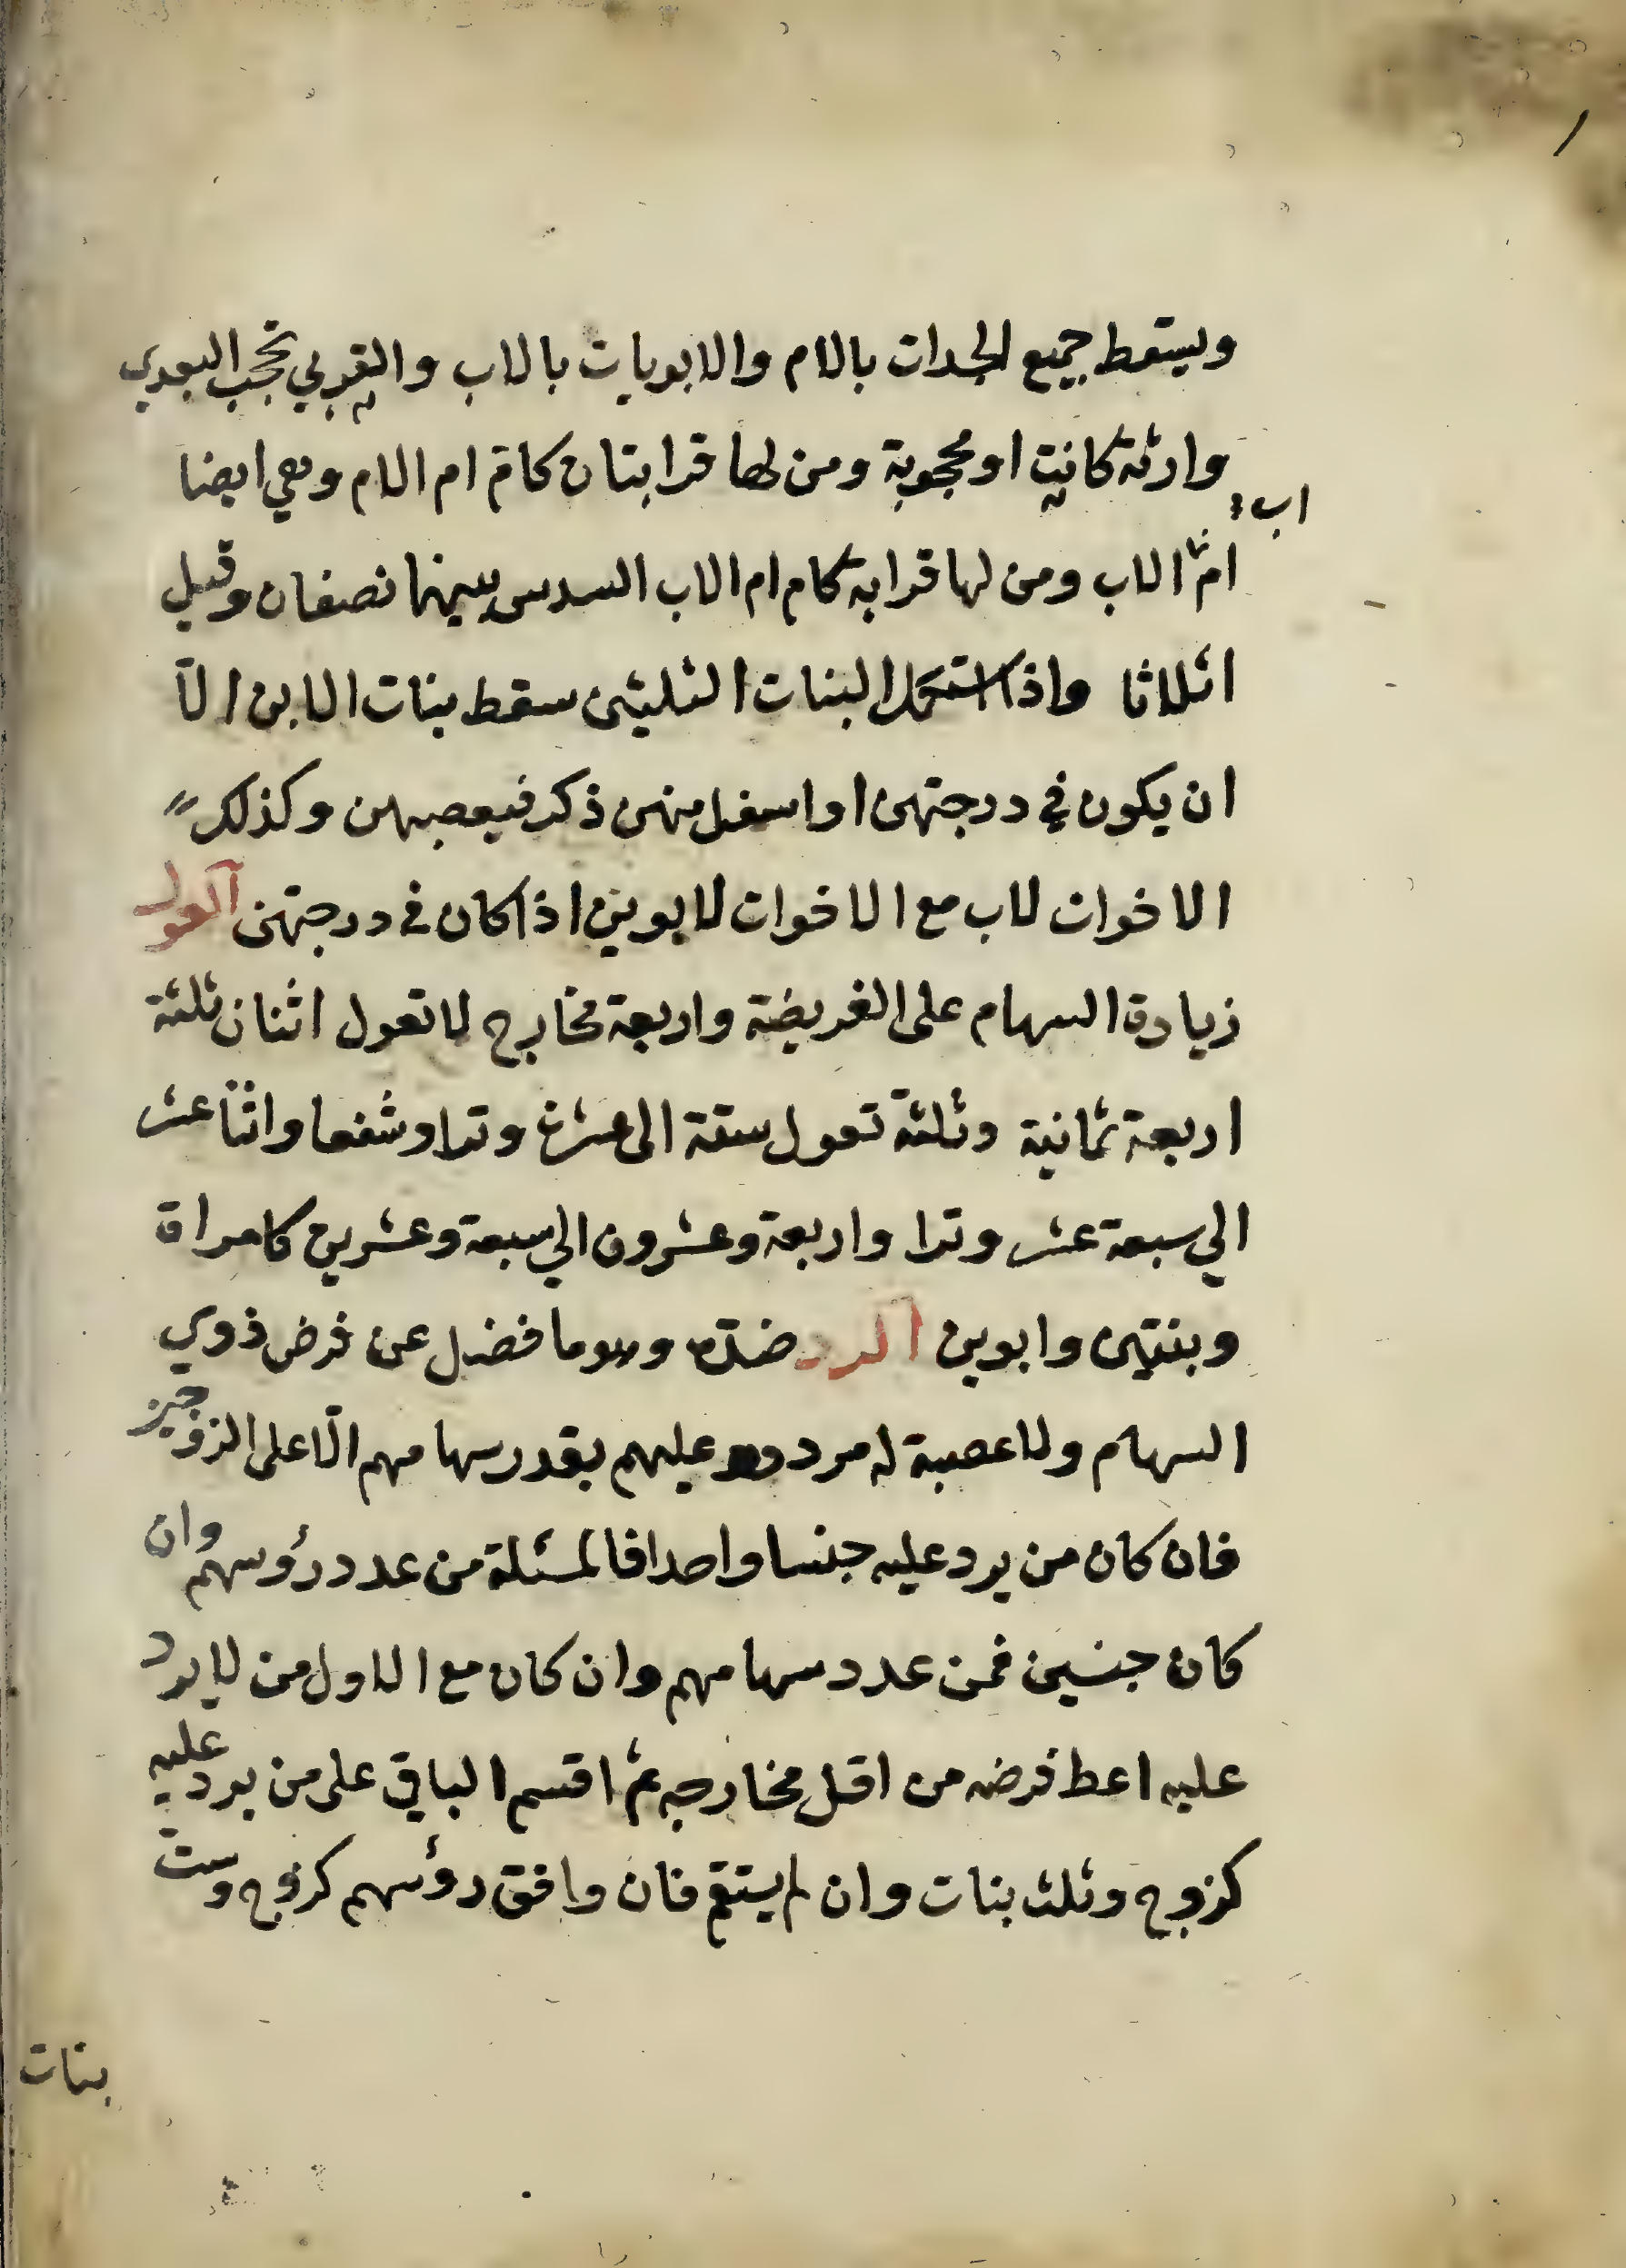 ويسقط جميع الجدات بالام والابويات بالاب والقربي تحجب البعدي
وارثة كانت او محجوبة ومن لها قرابتان كام ام الام وهي ايضا
اب
ام الاب ومن لها قرابة كام ام الاب السدس بينهما نصفان وقيل
اثلاثا واذا استكمل البنات الثلثين سقط بنات الابن الّا
ان يكون في درجتهن او اسفل منهن ذكر فيعصبهن وكذلك
الاخوات لاب مع الاخوات لابوين اذا كان في درجتهن العول
زيادة السهام على الفريضة واربعة مخارج لا تعول اثنان ثلثة
اربعة ثمانية وثلثة تعول ستة الى عشرة وترا وشفعا واثنا عشر
الي سبعة عشر وترا واربعة وعشرون الي سبعة وعشرين كامراة
وبنتين وابوين الرد ضده وهو ما فضل عن فرض ذوي
السهام ولا عصبة له مردود عليهم بقدر سهامهم الّا على الزوجين
فان كان من يرد عليه جنسا واحدا فالمسئلة من عدد رؤسهم وان
كان جنسين فمن عدد سهامهم وان كان مع الاول من لا يرد
عليه اعط فرضه من اقل مخارجه ثم اقسم الباقي على من يرد عليه
كزوج وثلث بنات وان لم يستقم فان وافق رؤسهم كزوج وست
بنات